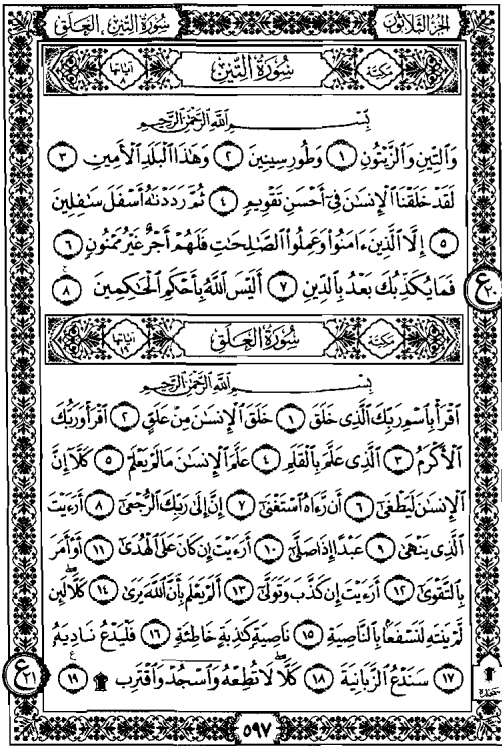 سُورَةُ التِّينِ ، العَلَق
الجُزْءُ الثَّلاثُونَ
مَكِّيَّة سُورَةُ التِّينِ آيَاتُهَا ٨
بِسْمِ اللَّهِ الرَّحْمَٰنِ الرَّحِيمِ
وَٱلتِّينِ وَٱلزَّيْتُونِ ١ وَطُورِ سِينِينَ ٢ وَهَٰذَا ٱلْبَلَدِ ٱلْأَمِينِ ٣
لَقَدْ خَلَقْنَا ٱلْإِنسَٰنَ فِىٓ أَحْسَنِ تَقْوِيمٍ ٤ ثُمَّ رَدَدْنَٰهُ أَسْفَلَ سَٰفِلِينَ
٥ إِلَّا ٱلَّذِينَ ءَامَنُوا۟ وَعَمِلُوا۟ ٱلصَّٰلِحَٰتِ فَلَهُمْ أَجْرٌ غَيْرُ مَمْنُونٍ ٦
فَمَا يُكَذِّبُكَ بَعْدُ بِٱلدِّينِ ٧ أَلَيْسَ ٱللَّهُ بِأَحْكَمِ ٱلْحَٰكِمِينَ ٨
ع ٢٠
مَكِّيَّة سُورَةُ العَلَقِ آيَاتُهَا ١٩
بِسْمِ اللَّهِ الرَّحْمَٰنِ الرَّحِيمِ
ٱقْرَأْ بِٱسْمِ رَبِّكَ ٱلَّذِى خَلَقَ ١ خَلَقَ ٱلْإِنسَٰنَ مِنْ عَلَقٍ ٢ ٱقْرَأْ وَرَبُّكَ
ٱلْأَكْرَمُ ٣ ٱلَّذِى عَلَّمَ بِٱلْقَلَمِ ٤ عَلَّمَ ٱلْإِنسَٰنَ مَا لَمْ يَعْلَمْ ٥ كَلَّآ إِنَّ
ٱلْإِنسَٰنَ لَيَطْغَىٰٓ ٦ أَن رَّءَاهُ ٱسْتَغْنَىٰٓ ٧ إِنَّ إِلَىٰ رَبِّكَ ٱلرُّجْعَىٰٓ ٨ أَرَءَيْتَ
ٱلَّذِى يَنْهَىٰ ٩ عَبْدًا إِذَا صَلَّىٰٓ ١٠ أَرَءَيْتَ إِن كَانَ عَلَى ٱلْهُدَىٰٓ ١١ أَوْ أَمَرَ
بِٱلتَّقْوَىٰٓ ١٢ أَرَءَيْتَ إِن كَذَّبَ وَتَوَلَّىٰٓ ١٣ أَلَمْ يَعْلَم بِأَنَّ ٱللَّهَ يَرَىٰ ١٤ كَلَّا لَئِن
لَّمْ يَنتَهِ لَنَسْفَعًۢا بِٱلنَّاصِيَةِ ١٥ نَاصِيَةٍ كَٰذِبَةٍ خَاطِئَةٍ ١٦ فَلْيَدْعُ نَادِيَهُۥ
١٧ سَنَدْعُ ٱلزَّبَانِيَةَ ١٨ كَلَّا لَا تُطِعْهُ وَٱسْجُدْ وَٱقْتَرِب ۩ ١٩
سجدة
ع ٢١
٥٩٧